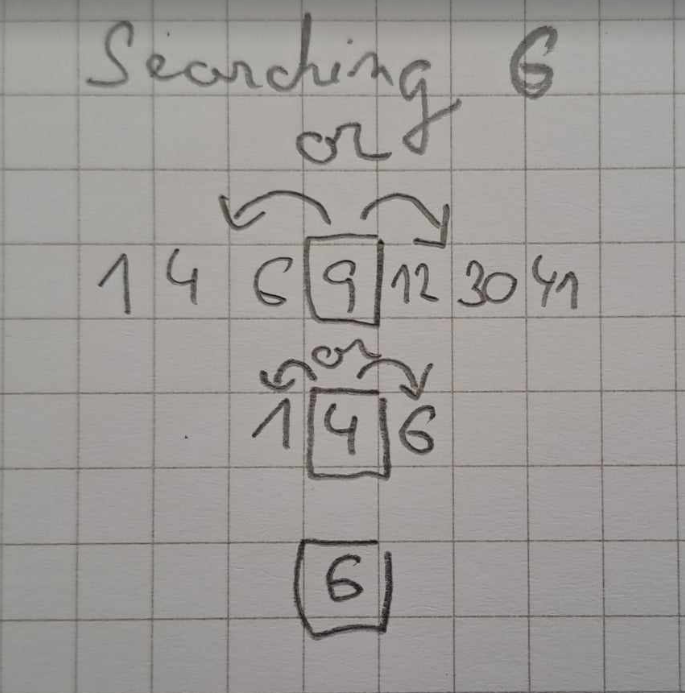 Searching 6
or
1 4 6 9 12 30 41
or
1 4 6
6